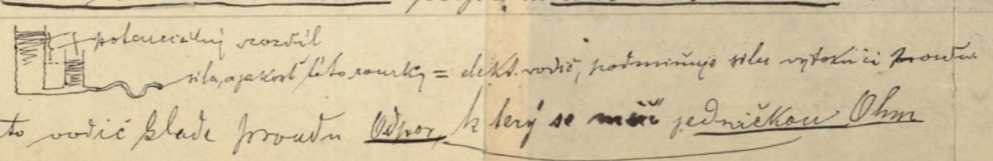 potenciálný rozdíl
síla, a jakost této rourky = elekt. vodič, podmiňuje sílu výtoku či proudu
to vodič klade proudu Odpor, který se měří jedničkou Ohm